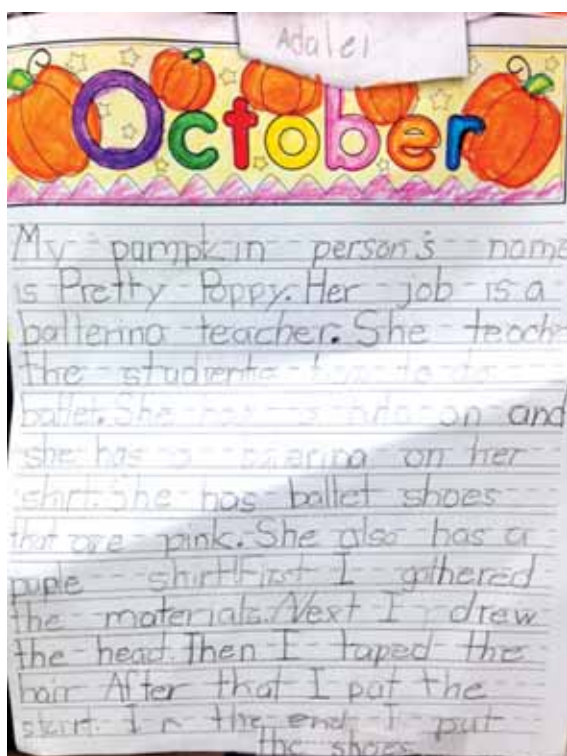 Adalei
October
My pumpkin person's name
is Pretty Poppy. Her job is a
ballerina teacher. She teach
the students how to do
ballet. She has a on and
she has a ballerina on her
shirt. She has ballet shoes
that are pink. She also has a
puple shirt! First I gathered
the materials. Next I drew
the head. Then I taped the
hair After that I put the
skirt. In the end I put
the shoes